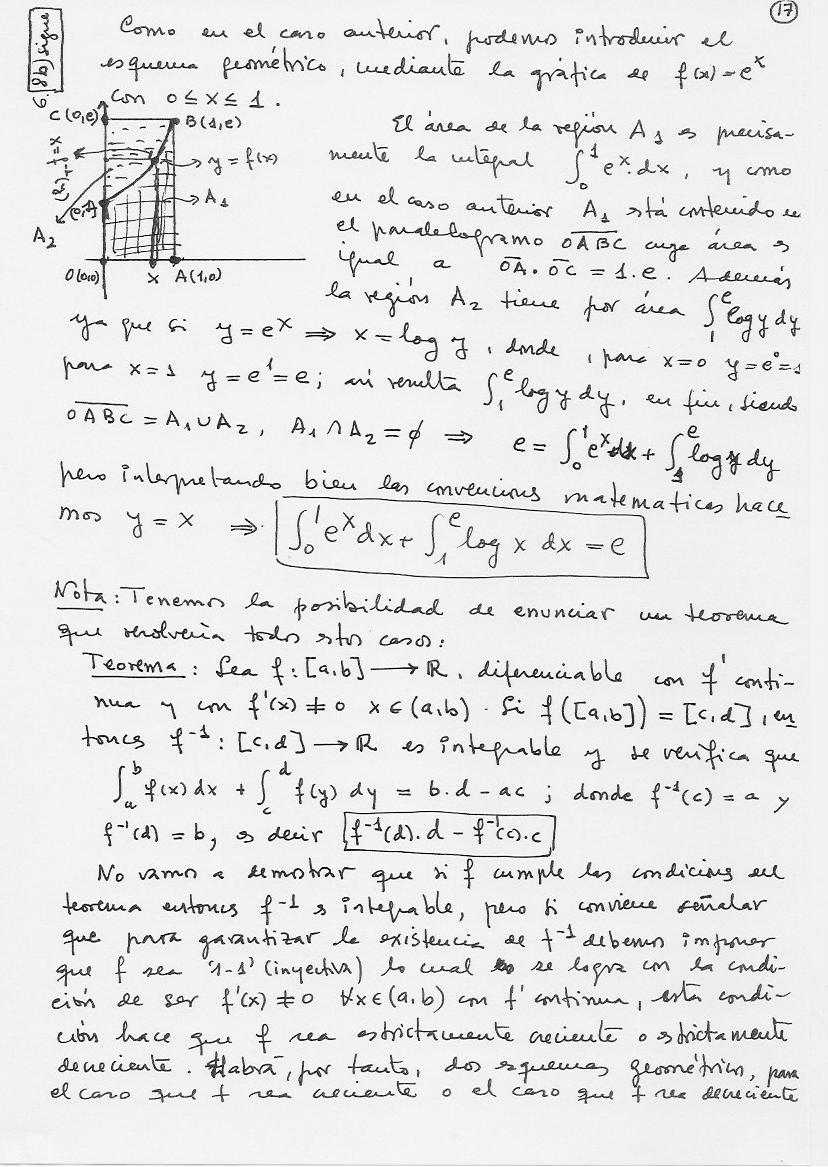 17
6, 8b) sigue
Como en el caso anterior, podemos introducir el
esquema geométrico, mediante la gráfica de f(x) = e^x
con 0 ≤ x ≤ 1.
C(0,e)
B(1,e)
y = f(x)
A₁
A₂
O(0,0)
x
A(1,0)
El área de la región A₁ es precisa-
mente la integral ∫₀¹ e^x·dx, y como
en el caso anterior A₁ está contenido en
el paralelogramo OABC cuya área es
igual a OA·OC = 1·e. Además
la región A₂ tiene por área ∫₁^e log y dy
ya que si y = e^x ⟹ x = log y, donde, para x=0 y=e⁰=1
para x=1 y=e¹=e; así resulta ∫₁^e log y dy, en fin, siendo
OABC = A₁∪A₂, A₁∩A₂ = ϕ ⟹ e = ∫₀¹ e^x dx + ∫₁^e log y dy
pero interpretando bien las convenciones matematicas hace
mos y = x ⟹ ∫₀¹ e^x dx + ∫₁^e log x dx = e
Nota: Tenemos la posibilidad de enunciar un teorema
que resolvería todos estos casos:
Teorema: Sea f: [a,b] ⟶ ℝ, diferenciable con f' conti-
nua y con f'(x) ≠ 0 x∈(a,b). Si f([a,b]) = [c,d], en
tonces f⁻¹: [c,d] ⟶ ℝ es integrable y se verifica que
∫ₐᵇ f(x) dx + ∫_c^d f(y) dy = b·d - ac; donde f⁻¹(c) = a y
f⁻¹(d) = b, es decir f⁻¹(d)·d - f⁻¹(c)·c
No vamos a demostrar que si f cumple las condiciones del
teorema entonces f⁻¹ es integrable, pero si conviene señalar
que para garantizar la existencia de f⁻¹ debemos imponer
que f sea '1-1' (inyectiva) lo cual se logra con la condi-
ción de ser f'(x) ≠ 0 ∀x∈(a,b) con f' continua, esta condi-
ción hace que f sea estrictamente creciente o estrictamente
decreciente. Habrá, por tanto, dos esquemas geométricos, para
el caso que f sea creciente o el caso que f sea decreciente